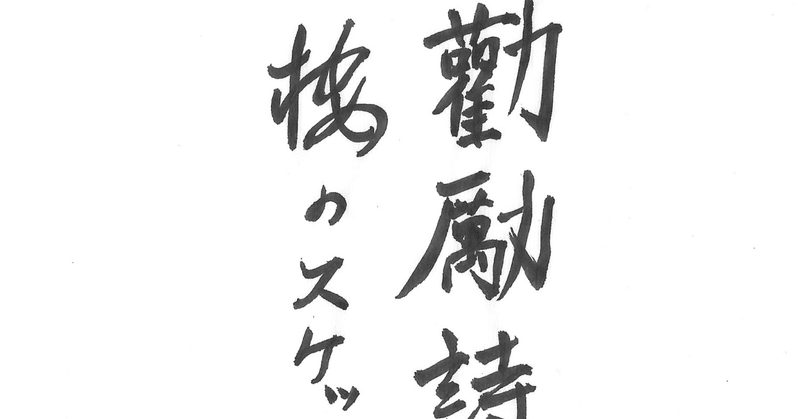 勸勵詩
桜のスケッ